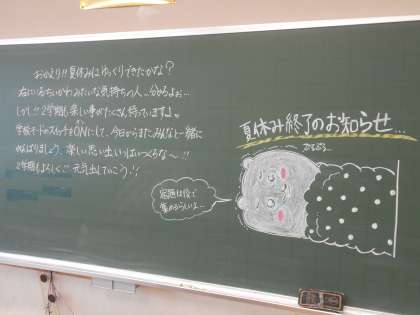 おかえり!!夏休みはゆっくりできたかな?
右にいるちいかわみたいな気持ちの人~分かるよぉ…
しかし!!2学期も楽しい事がたくさん待っていますよ。
学校モードのスイッチをONにして、今日からまたみんなと一緒に
がんばりましょう。楽しい思い出いっぱいつくろうな~!!
2学期もよろしく!!元気出していこう!!
夏休み終了のお知らせ…
ぷるぷる…
宿題は後で
集めるらしいよ…